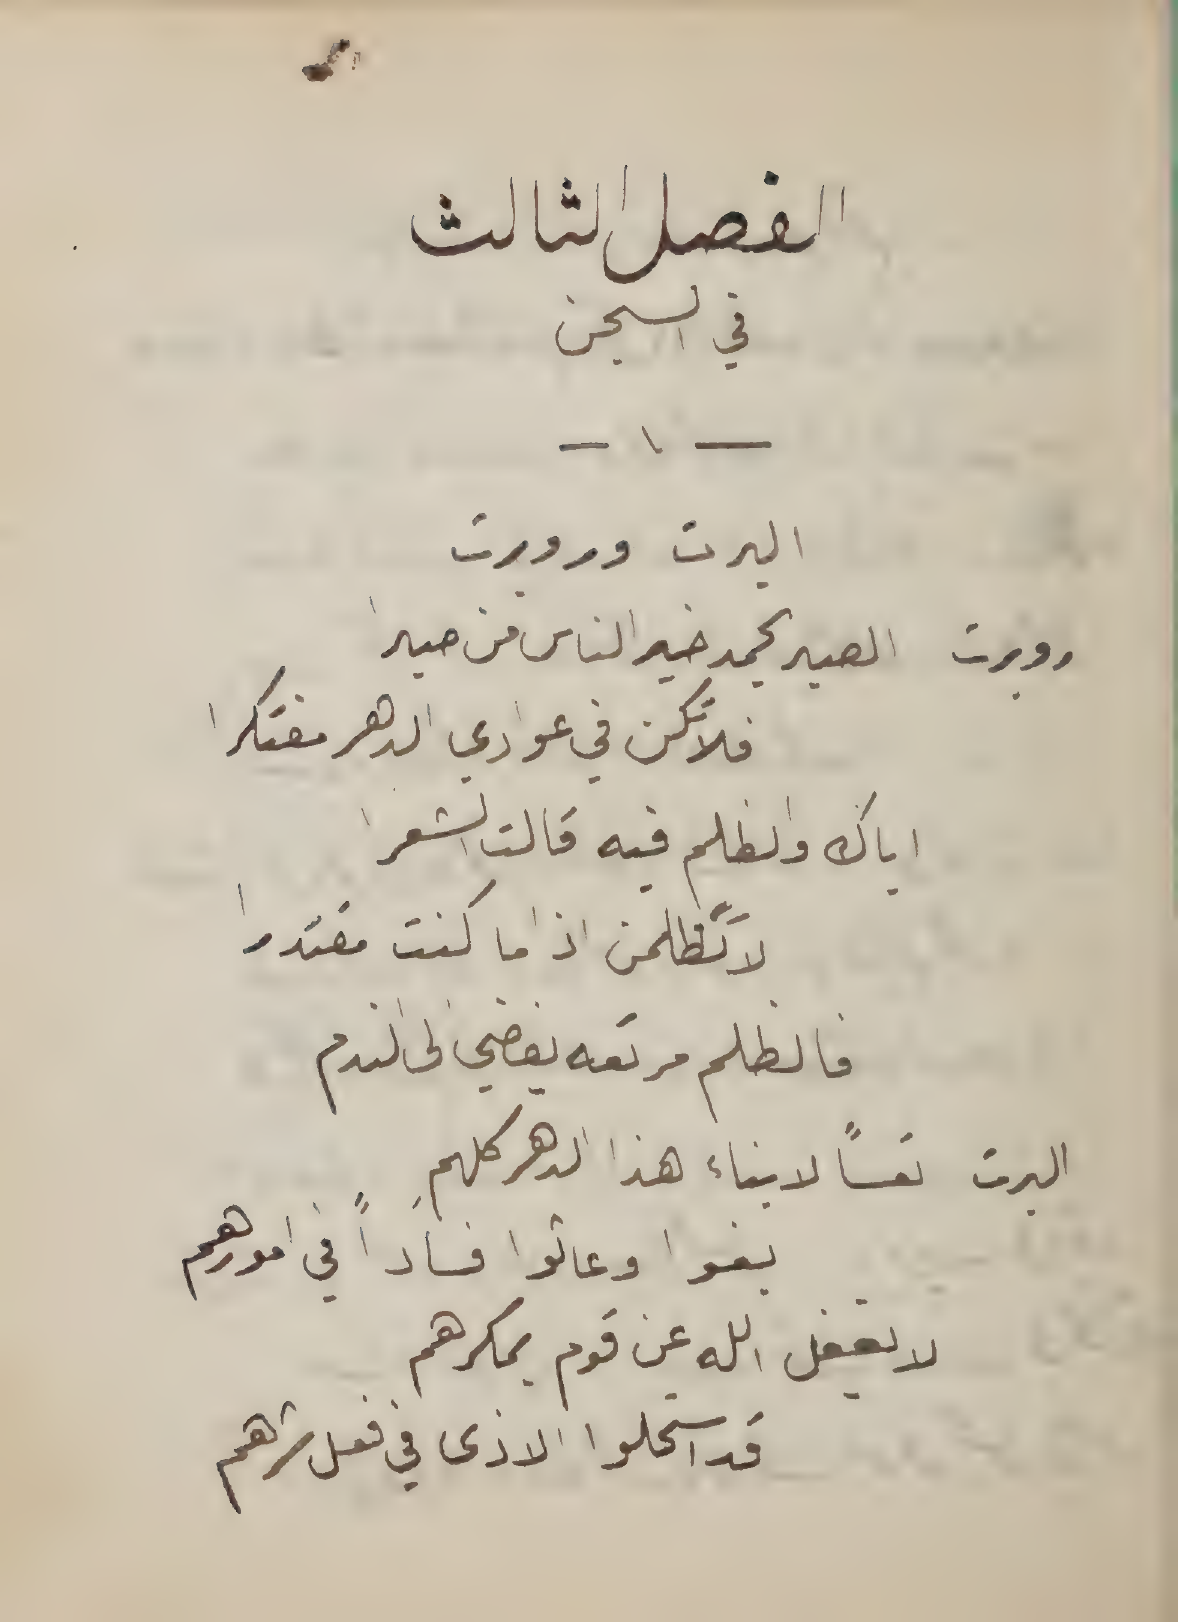 الفصل الثالث
في السجن
— ١ —
البرت وروبرت
روبرت الصبر يحمد خير الناس من صبرا
فلا تكن في عوادي الدهر مفتكرا
اياك والظلم فيه قالت الشعرا
لا تظلمن اذا ما كنت مقتدرا
فالظلم مرتعه يفضي الى الندم
البرت تعساً لابناء هذا الدهر كلهم
بغوا وعاثوا فساداً في امورهم
لا يغفل الله عن قوم بمكرهم
قد استحلوا الاذى في فعل شرهم